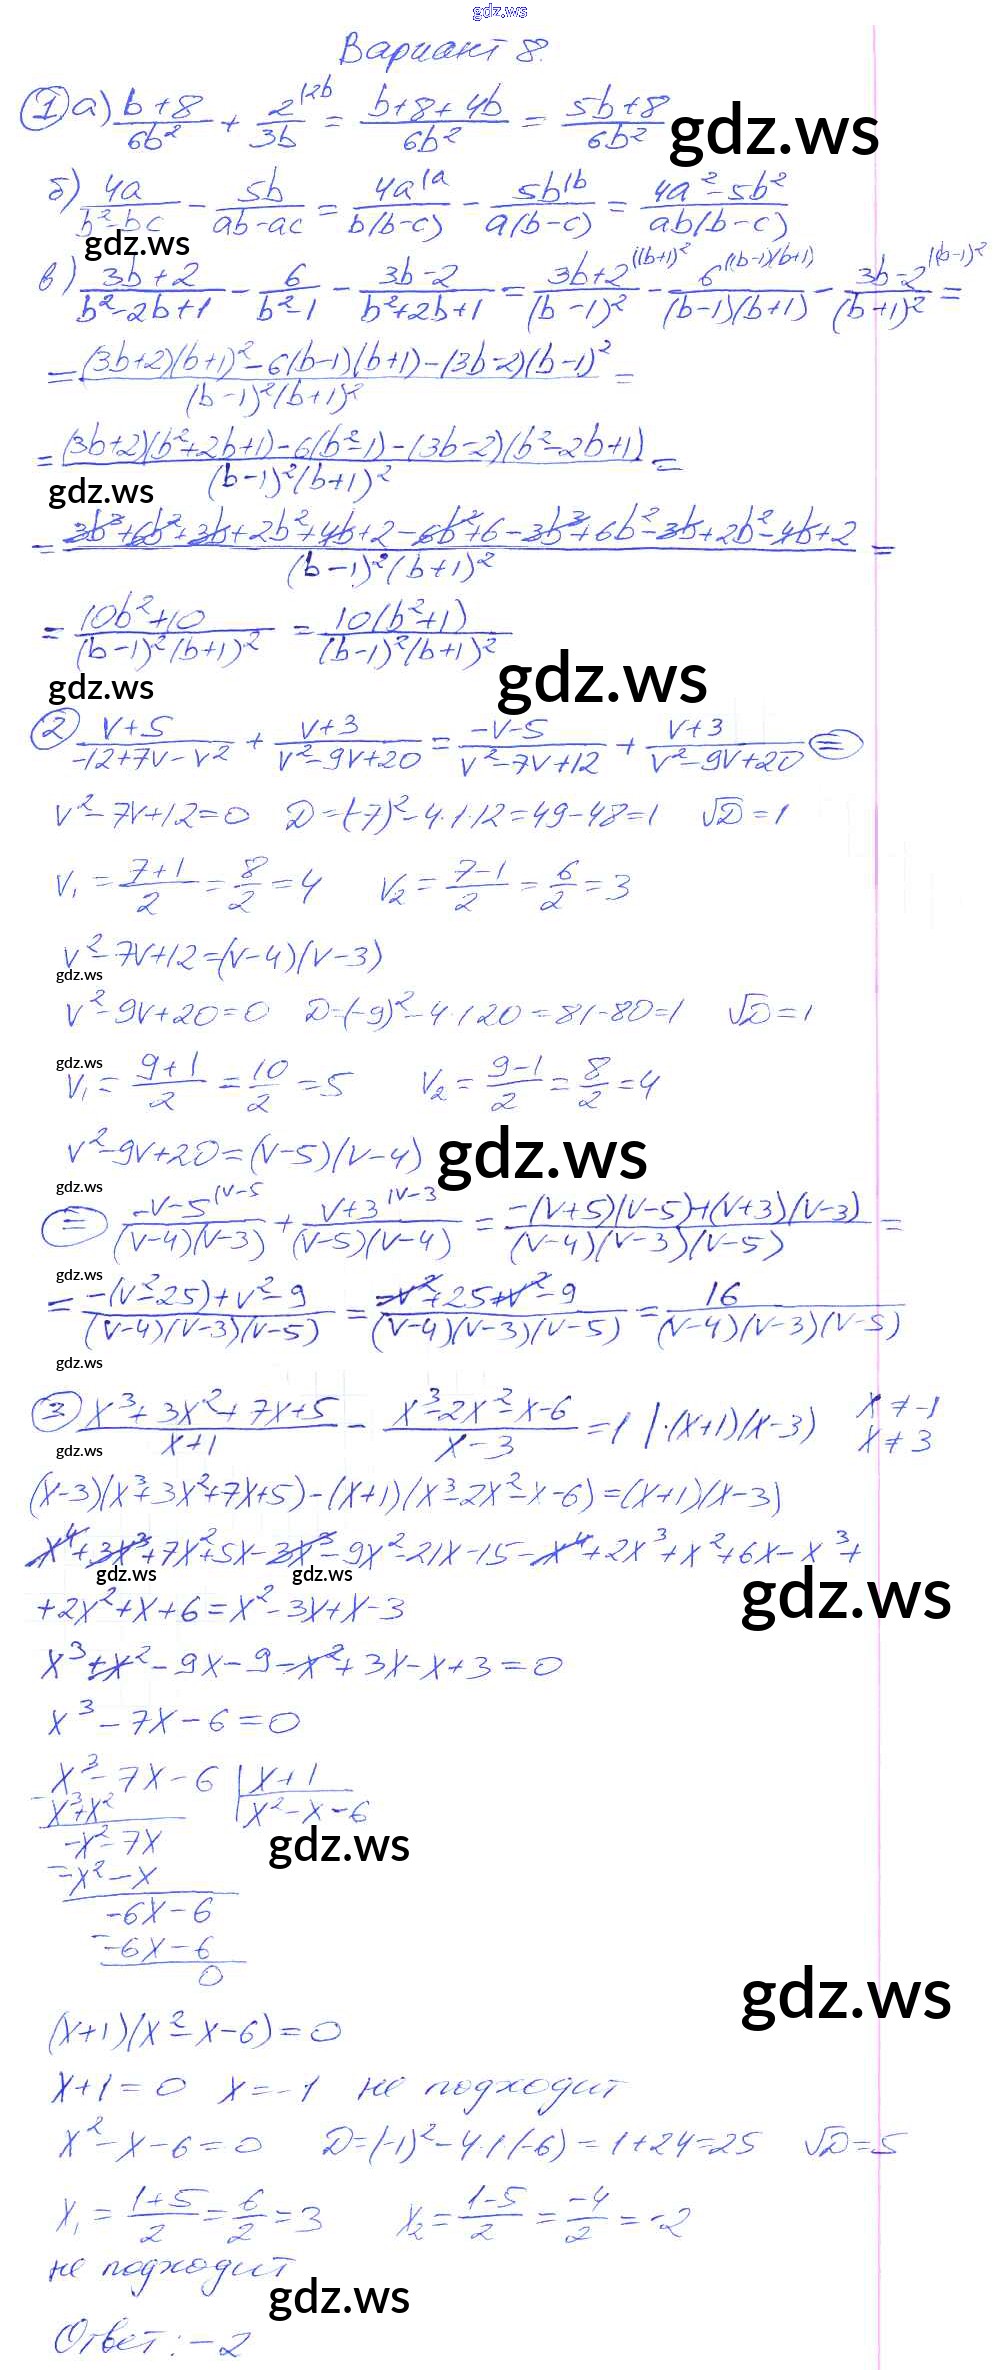 gdz.ws
Вариант 8.
① а) (b+8)/(6b²) + 2^{|2b}/(3b) = (b+8+4b)/(6b²) = (5b+8)/(6b²)
gdz.ws
б) 4a/(b²-bc) - 5b/(ab-ac) = 4a^{|a}/(b(b-c)) - 5b^{|b}/(a(b-c)) = (4a²-5b²)/(ab(b-c))
gdz.ws
в) (3b+2)/(b²-2b+1) - 6/(b²-1) - (3b-2)/(b²+2b+1) = (3b+2)^{|(b+1)²}/(b-1)² - 6^{|(b-1)(b+1)}/((b-1)(b+1)) - (3b-2)^{|(b-1)²}/(b+1)² =
= ((3b+2)(b+1)²-6(b-1)(b+1)-(3b-2)(b-1)²)/((b-1)²(b+1)²) =
= ((3b+2)(b²+2b+1)-6(b²-1)-(3b-2)(b²-2b+1))/((b-1)²(b+1)²) =
gdz.ws
= (3b³+6b²+3b+2b²+4b+2-6b²+6-3b³+6b²-3b+2b²-4b+2)/((b-1)²(b+1)²) =
= (10b²+10)/((b-1)²(b+1)²) = 10(b²+1)/((b-1)²(b+1)²)
gdz.ws
gdz.ws
② (v+5)/(-12+7v-v²) + (v+3)/(v²-9v+20) = (-v-5)/(v²-7v+12) + (v+3)/(v²-9v+20) ⊜
v²-7v+12=0 D=(-7)²-4·1·12=49-48=1 √D=1
v₁ = (7+1)/2 = 8/2 = 4 v₂ = (7-1)/2 = 6/2 = 3
v²-7v+12=(v-4)(v-3)
gdz.ws
v²-9v+20=0 D=(-9)²-4·1·20=81-80=1 √D=1
gdz.ws
v₁ = (9+1)/2 = 10/2 = 5 v₂ = (9-1)/2 = 8/2 = 4
v²-9v+20=(v-5)(v-4)
gdz.ws
gdz.ws
⊜ (-v-5)^{|v-5}/((v-4)(v-3)) + (v+3)^{|v-3}/((v-5)(v-4)) = (-(v+5)(v-5)+(v+3)(v-3))/((v-4)(v-3)(v-5)) =
gdz.ws
= (-(v²-25)+v²-9)/((v-4)(v-3)(v-5)) = (-v²+25+v²-9)/((v-4)(v-3)(v-5)) = 16/((v-4)(v-3)(v-5))
gdz.ws
③ (x³+3x²+7x+5)/(x+1) - (x³-2x²-x-6)/(x-3) = 1 |·(x+1)(x-3) x≠-1
x≠3
gdz.ws
(x-3)(x³+3x²+7x+5)-(x+1)(x³-2x²-x-6)=(x+1)(x-3)
x⁴+3x³+7x²+5x-3x³-9x²-21x-15-x⁴+2x³+x²+6x-x³+
gdz.ws gdz.ws
gdz.ws
+2x²+x+6=x²-3x+x-3
x³+x²-9x-9-x²+3x-x+3=0
x³-7x-6=0
x³-7x-6 | x+1
x³+x² | x²-x-6
-x²-7x
gdz.ws
-x²-x
-6x-6
-6x-6
0
gdz.ws
(x+1)(x²-x-6)=0
x+1=0 x=-1 не подходит
x²-x-6=0 D=(-1)²-4·1(-6)=1+24=25 √D=5
x₁ = (1+5)/2 = 6/2 = 3 x₂ = (1-5)/2 = -4/2 = -2
не подходит
gdz.ws
Ответ: -2